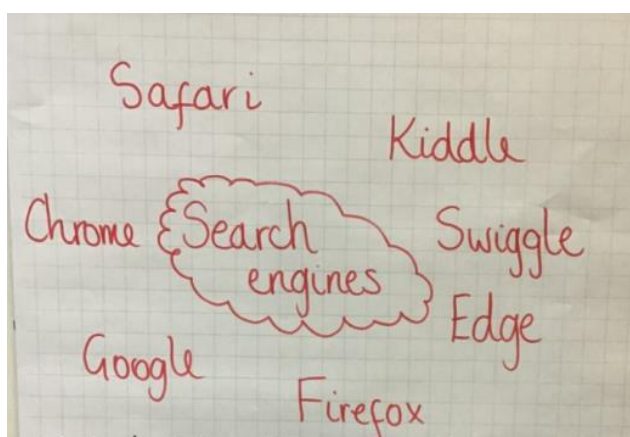 Safari
Kiddle
Chrome
Search
engines
Swiggle
Edge
Google
Firefox